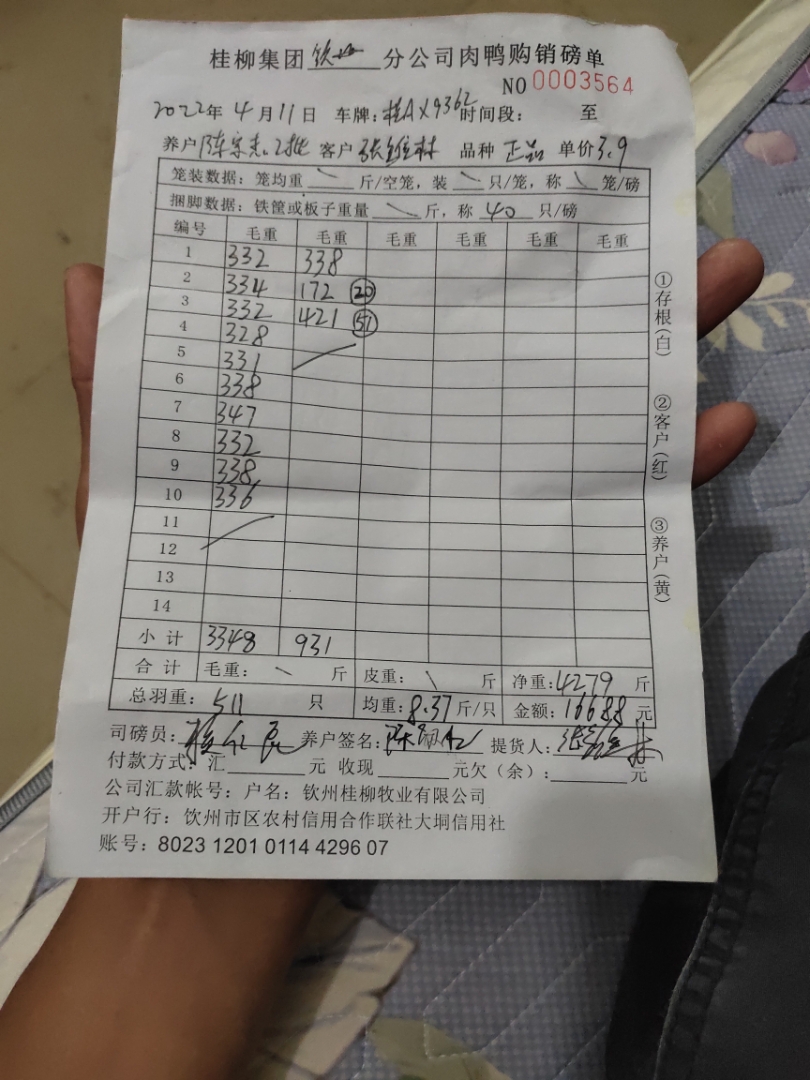 桂柳集团 钦州 分公司肉鸭购销磅单
NO 0003564
2022年4月11日 车牌：桂AX9362 时间段： 至
养户 陈宗杰2批 客户 张维林 品种 正品 单价 3.9
笼装数据：笼均重 \ 斤/空笼，装 \ 只/笼，称 \ 笼/磅
捆脚数据：铁筐或板子重量 \ 斤，称 40 只/磅
编号 毛重 毛重 毛重 毛重 毛重 毛重
1 332 338
2 334 172 20
3 332 421 51
4 328
5 331
6 338
7 347
8 332
9 338
10 336
11
12
13
14
小计 3348 931
合计 毛重： \ 斤 皮重： \ 斤 净重：4279 斤
总羽重： 511 只 均重：8.37 斤/只 金额：16688 元
司磅员： 养户签名： 提货人：张维林
付款方式：汇 元 收现 元欠（余）： 元
公司汇款帐号：户名：钦州桂柳牧业有限公司
开户行：钦州市区农村信用合作联社大垌信用社
账号：8023 1201 0114 4296 07
①存根（白）
②客户（红）
③养户（黄）